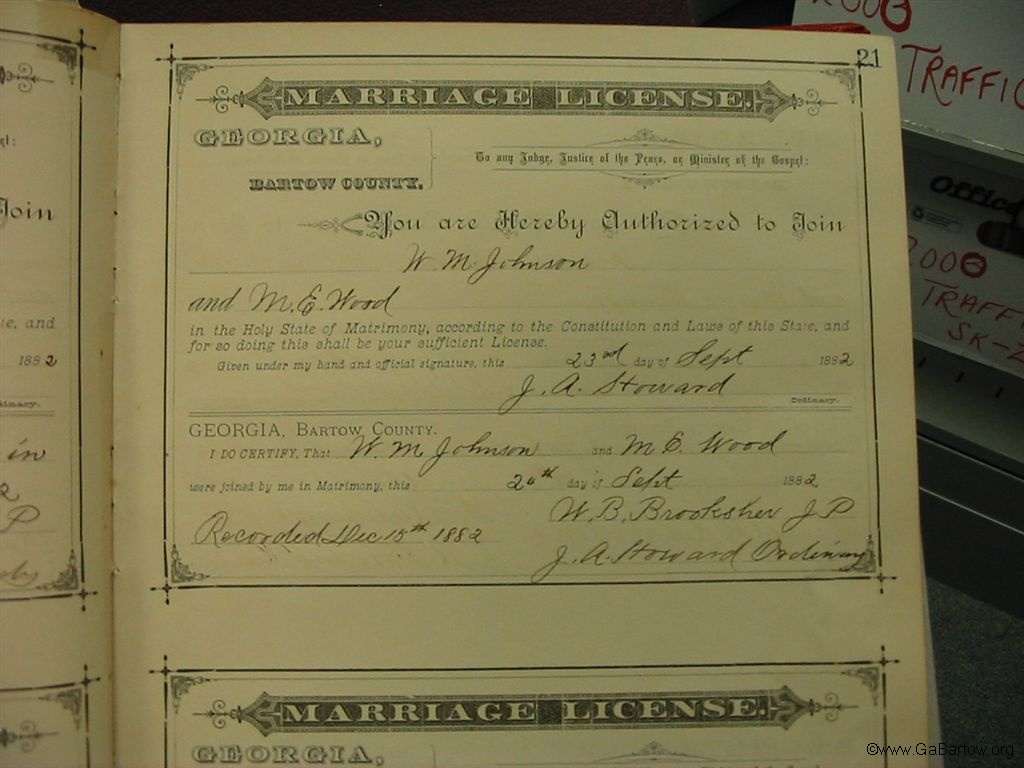 21
MARRIAGE LICENSE.
GEORGIA,
BARTOW COUNTY.
To any Judge, Justice of the Peace, or Minister of the Gospel:
You are Hereby Authorized to Join
W. M. Johnson
and M. E. Wood
in the Holy State of Matrimony, according to the Constitution and Laws of this State, and
for so doing this shall be your sufficient License.
Given under my hand and official signature, this 23rd day of Sept 1882
J. A. Howard
Ordinary.
GEORGIA, BARTOW COUNTY.
I DO CERTIFY, That W. M. Johnson and M. E. Wood
were joined by me in Matrimony, this day of Sept 1882
W. B. Brooksher J P
Recorded Dec 15th 1882
J. A. Howard Ordinary
MARRIAGE LICENSE.
GEORGIA,
Join
te, and
1882
Ordinary.
in
2
P
TRAFFIC
Office
2006
TRAFFI
SK-Z
©www.GaBartow.org